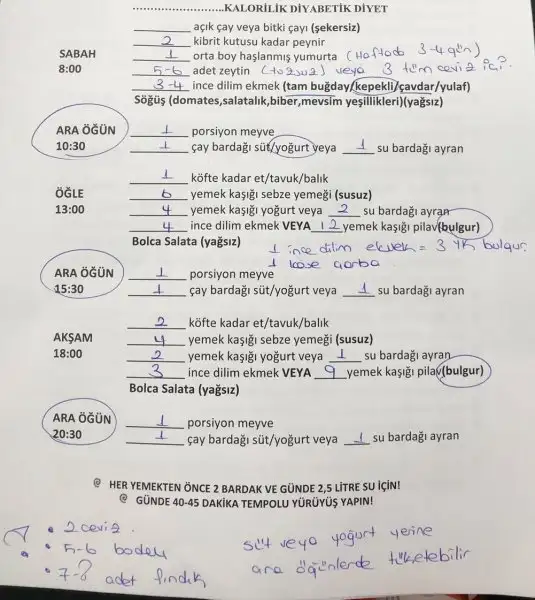 ..............................KALORİLİK DİYABETİK DİYET
______ açık çay veya bitki çayı (şekersiz)
2 kibrit kutusu kadar peynir
SABAH
8:00
1 orta boy haşlanmış yumurta (Haftada 3-4 gün)
5-6 adet zeytin (tuzsuz) veya 3 tüm ceviz içi.
3-4 ince dilim ekmek (tam buğday/kepekli/çavdar/yulaf)
Söğüş (domates,salatalık,biber,mevsim yeşillikleri)(yağsız)
ARA ÖĞÜN
10:30
1 porsiyon meyve
1 çay bardağı süt/yoğurt veya 1 su bardağı ayran
ÖĞLE
13:00
1 köfte kadar et/tavuk/balık
6 yemek kaşığı sebze yemeği (susuz)
4 yemek kaşığı yoğurt veya 2 su bardağı ayran
4 ince dilim ekmek VEYA 12 yemek kaşığı pilav(bulgur)
Bolca Salata (yağsız)
1 ince dilim ekmek = 3 YK bulgur.
1 kase çorba
ARA ÖĞÜN
15:30
1 porsiyon meyve
1 çay bardağı süt/yoğurt veya 1 su bardağı ayran
AKŞAM
18:00
2 köfte kadar et/tavuk/balık
4 yemek kaşığı sebze yemeği (susuz)
2 yemek kaşığı yoğurt veya 1 su bardağı ayran
3 ince dilim ekmek VEYA 9 yemek kaşığı pilav(bulgur)
Bolca Salata (yağsız)
ARA ÖĞÜN
20:30
1 porsiyon meyve
1 çay bardağı süt/yoğurt veya 1 su bardağı ayran
@ HER YEMEKTEN ÖNCE 2 BARDAK VE GÜNDE 2,5 LİTRE SU İÇİN!
@ GÜNDE 40-45 DAKİKA TEMPOLU YÜRÜYÜŞ YAPIN!
• 2 ceviz.
• 5-6 badem
• 7-8 adet fındık
süt veya yoğurt yerine
ara öğünlerde tüketebilir